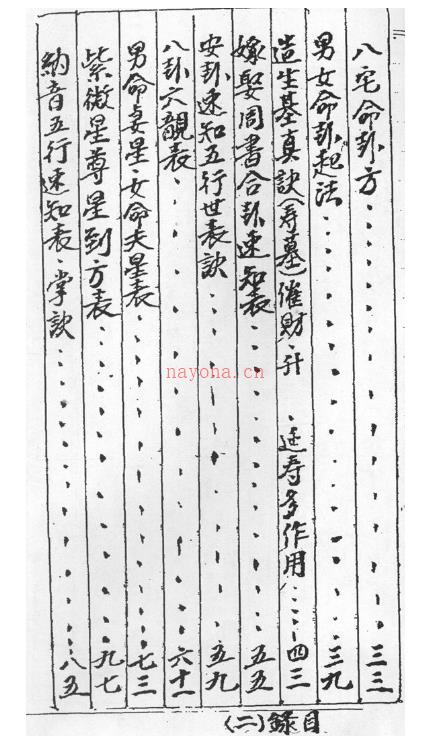 八宅命卦方．．．．．．．．三三
男女命卦起法．．．．．．．．三九
造生基真訣(寿墓)催財．升　．延寿多作用．．．．四三
嫁娶周書合卦速知表．．．．．．．．五五
安卦速知五行世表訣．．．．．．．．五九
八卦六親表．．．．．．．．六十一
男命妻星．女命夫星表．．．．．．．．七三
紫微星尊星到方表．．．．．．．．九七
納音五行速知表．掌訣．．．．．．．．八五
(二)錄目
nayona.cn